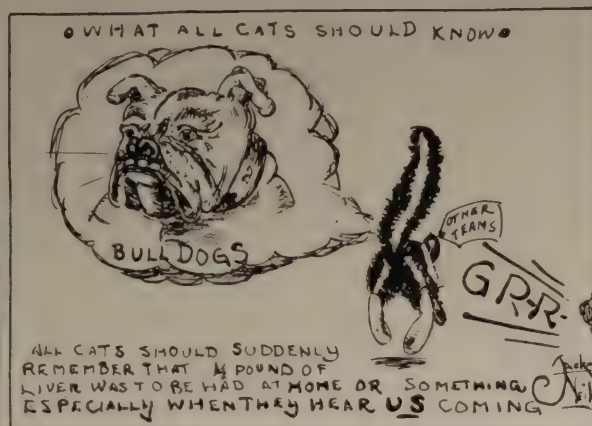 •WHAT ALL CATS SHOULD KNOW•
BULLDOGS
OTHER
TEAMS
GR-R-
ALL CATS SHOULD SUDDENLY
REMEMBER THAT ¼ POUND OF
LIVER WAS TO BE HAD AT HOME OR SOMETHING
ESPECIALLY WHEN THEY HEAR US COMING